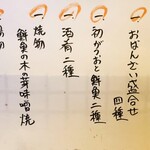 一 おばんざい盛合せ
四種
一 初がつおと鮮魚二種
一 酒肴二種
一 焼物
鮮魚の木の芽味噌焼